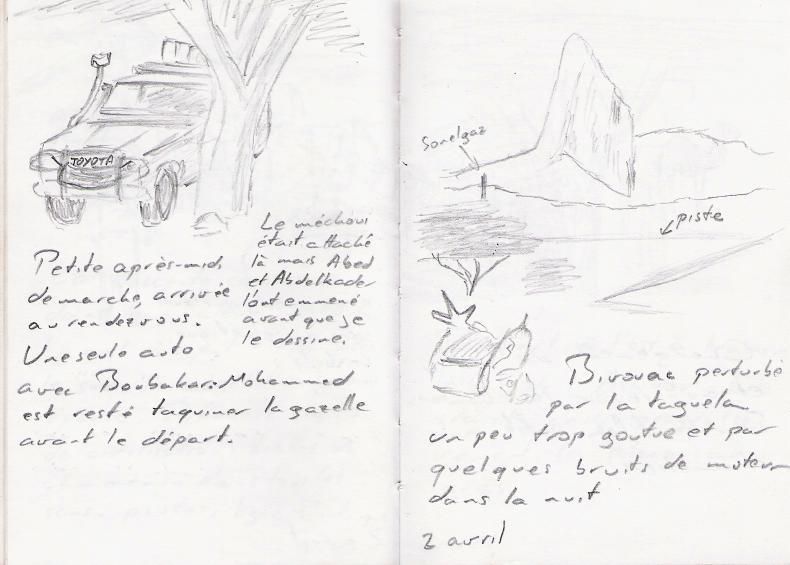 TOYOTA
Le méchoui
était attaché
là mais Abed
et Abdelkader
l'ont emmené
avant que je
le dessine.
Petite après-midi
de marche, arrivée
au rendez vous.
Une seule auto
avec Boubakar. Mohammed
est resté taquiner la gazelle
avant le départ.
Sonelgaz
piste
Bivouac perturbé
par la taguela
un peu trop goutue et par
quelques bruits de moteur
dans la nuit
2 avril